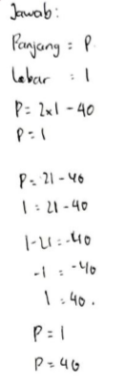 Jawab:
Panjang = P
Lebar : l
P = 2xl - 40
P = l
P = 2l - 40
l = 2l - 40
l - 2l = -40
-l = -40
l = 40.
P = l
P = 40